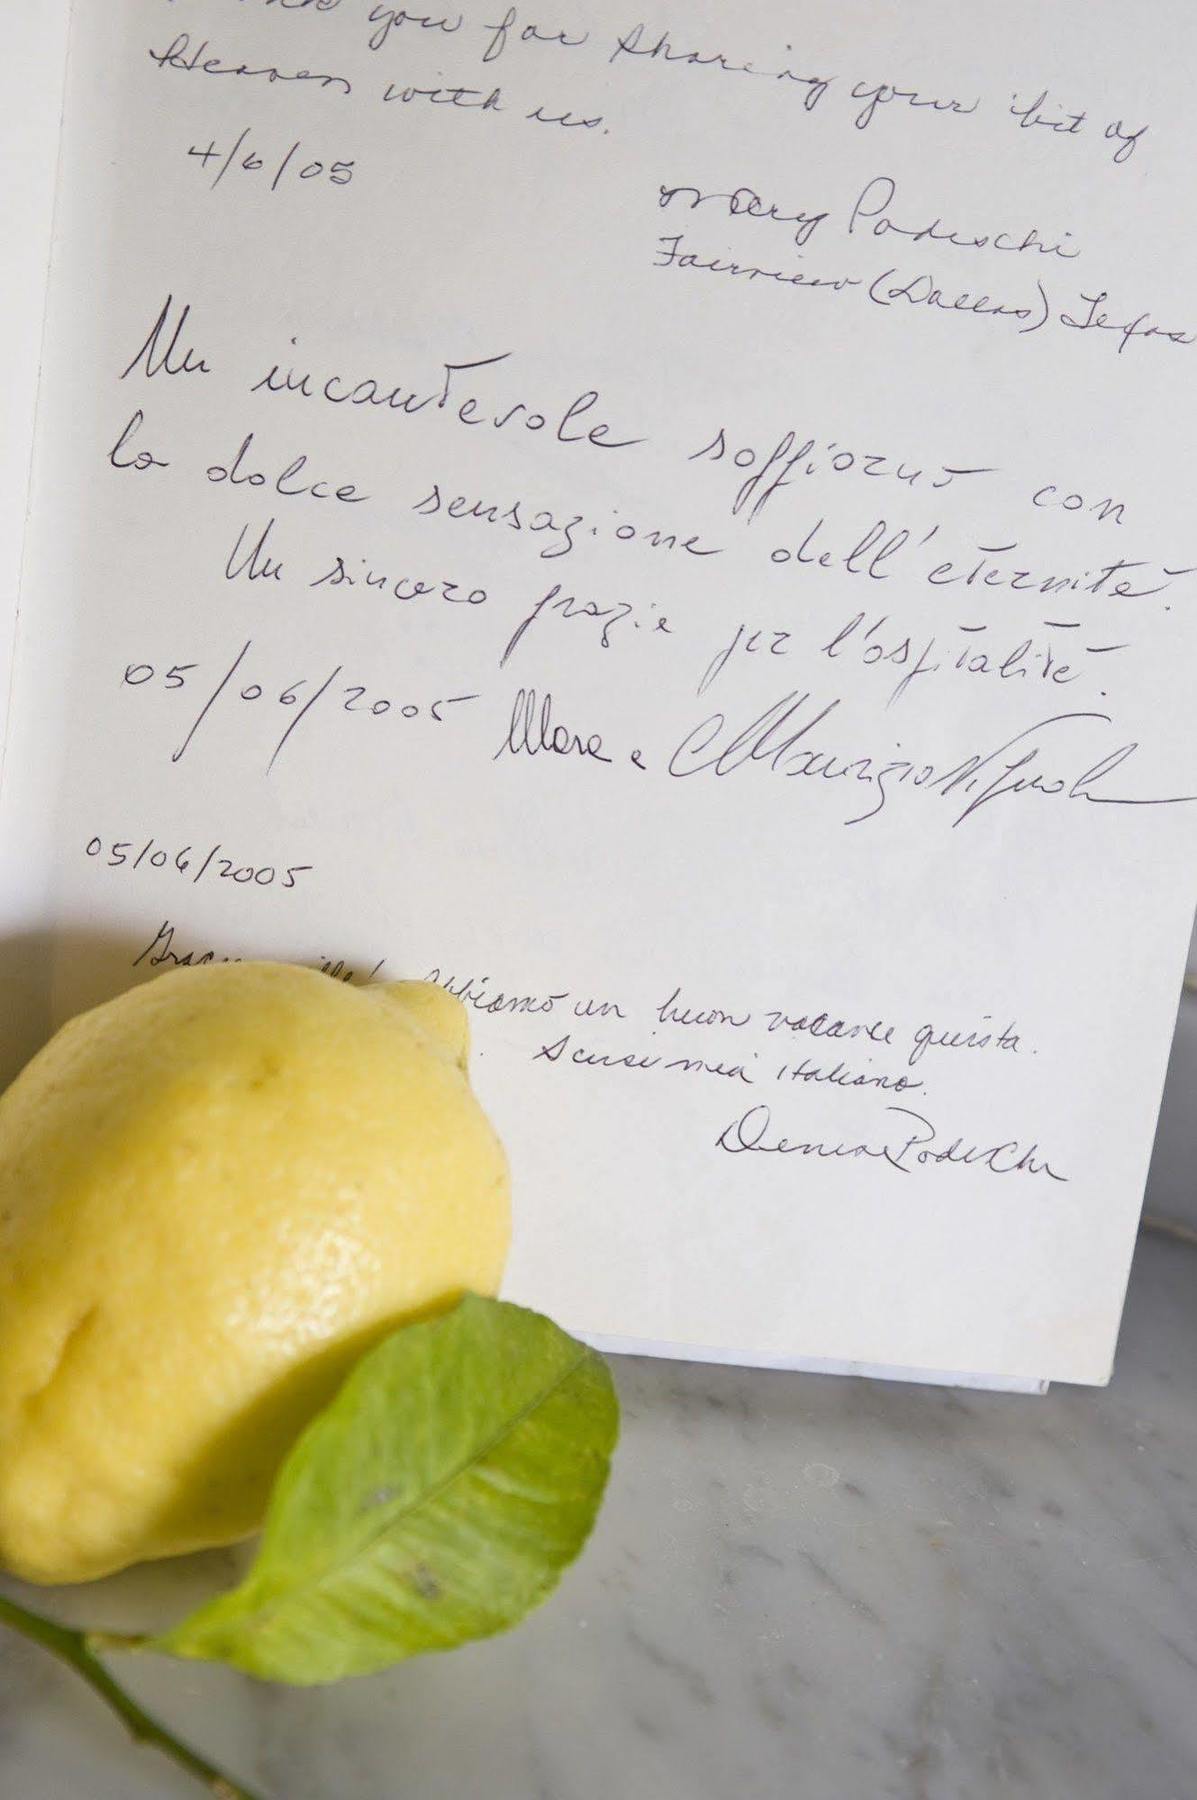 you for sharing your bit of
Heaven with us.
4/6/05
Mary Podeschi
Fairview (Dallas) Texas
Un incantevole soggiorno con
la dolce sensazione dell'eternità.
Un sincero grazie per l'ospitalità.
05/06/2005 Mara e Maurizio
05/06/2005
Abbiamo un buon vacance questa.
Scusi mia italiano.
Podeschi